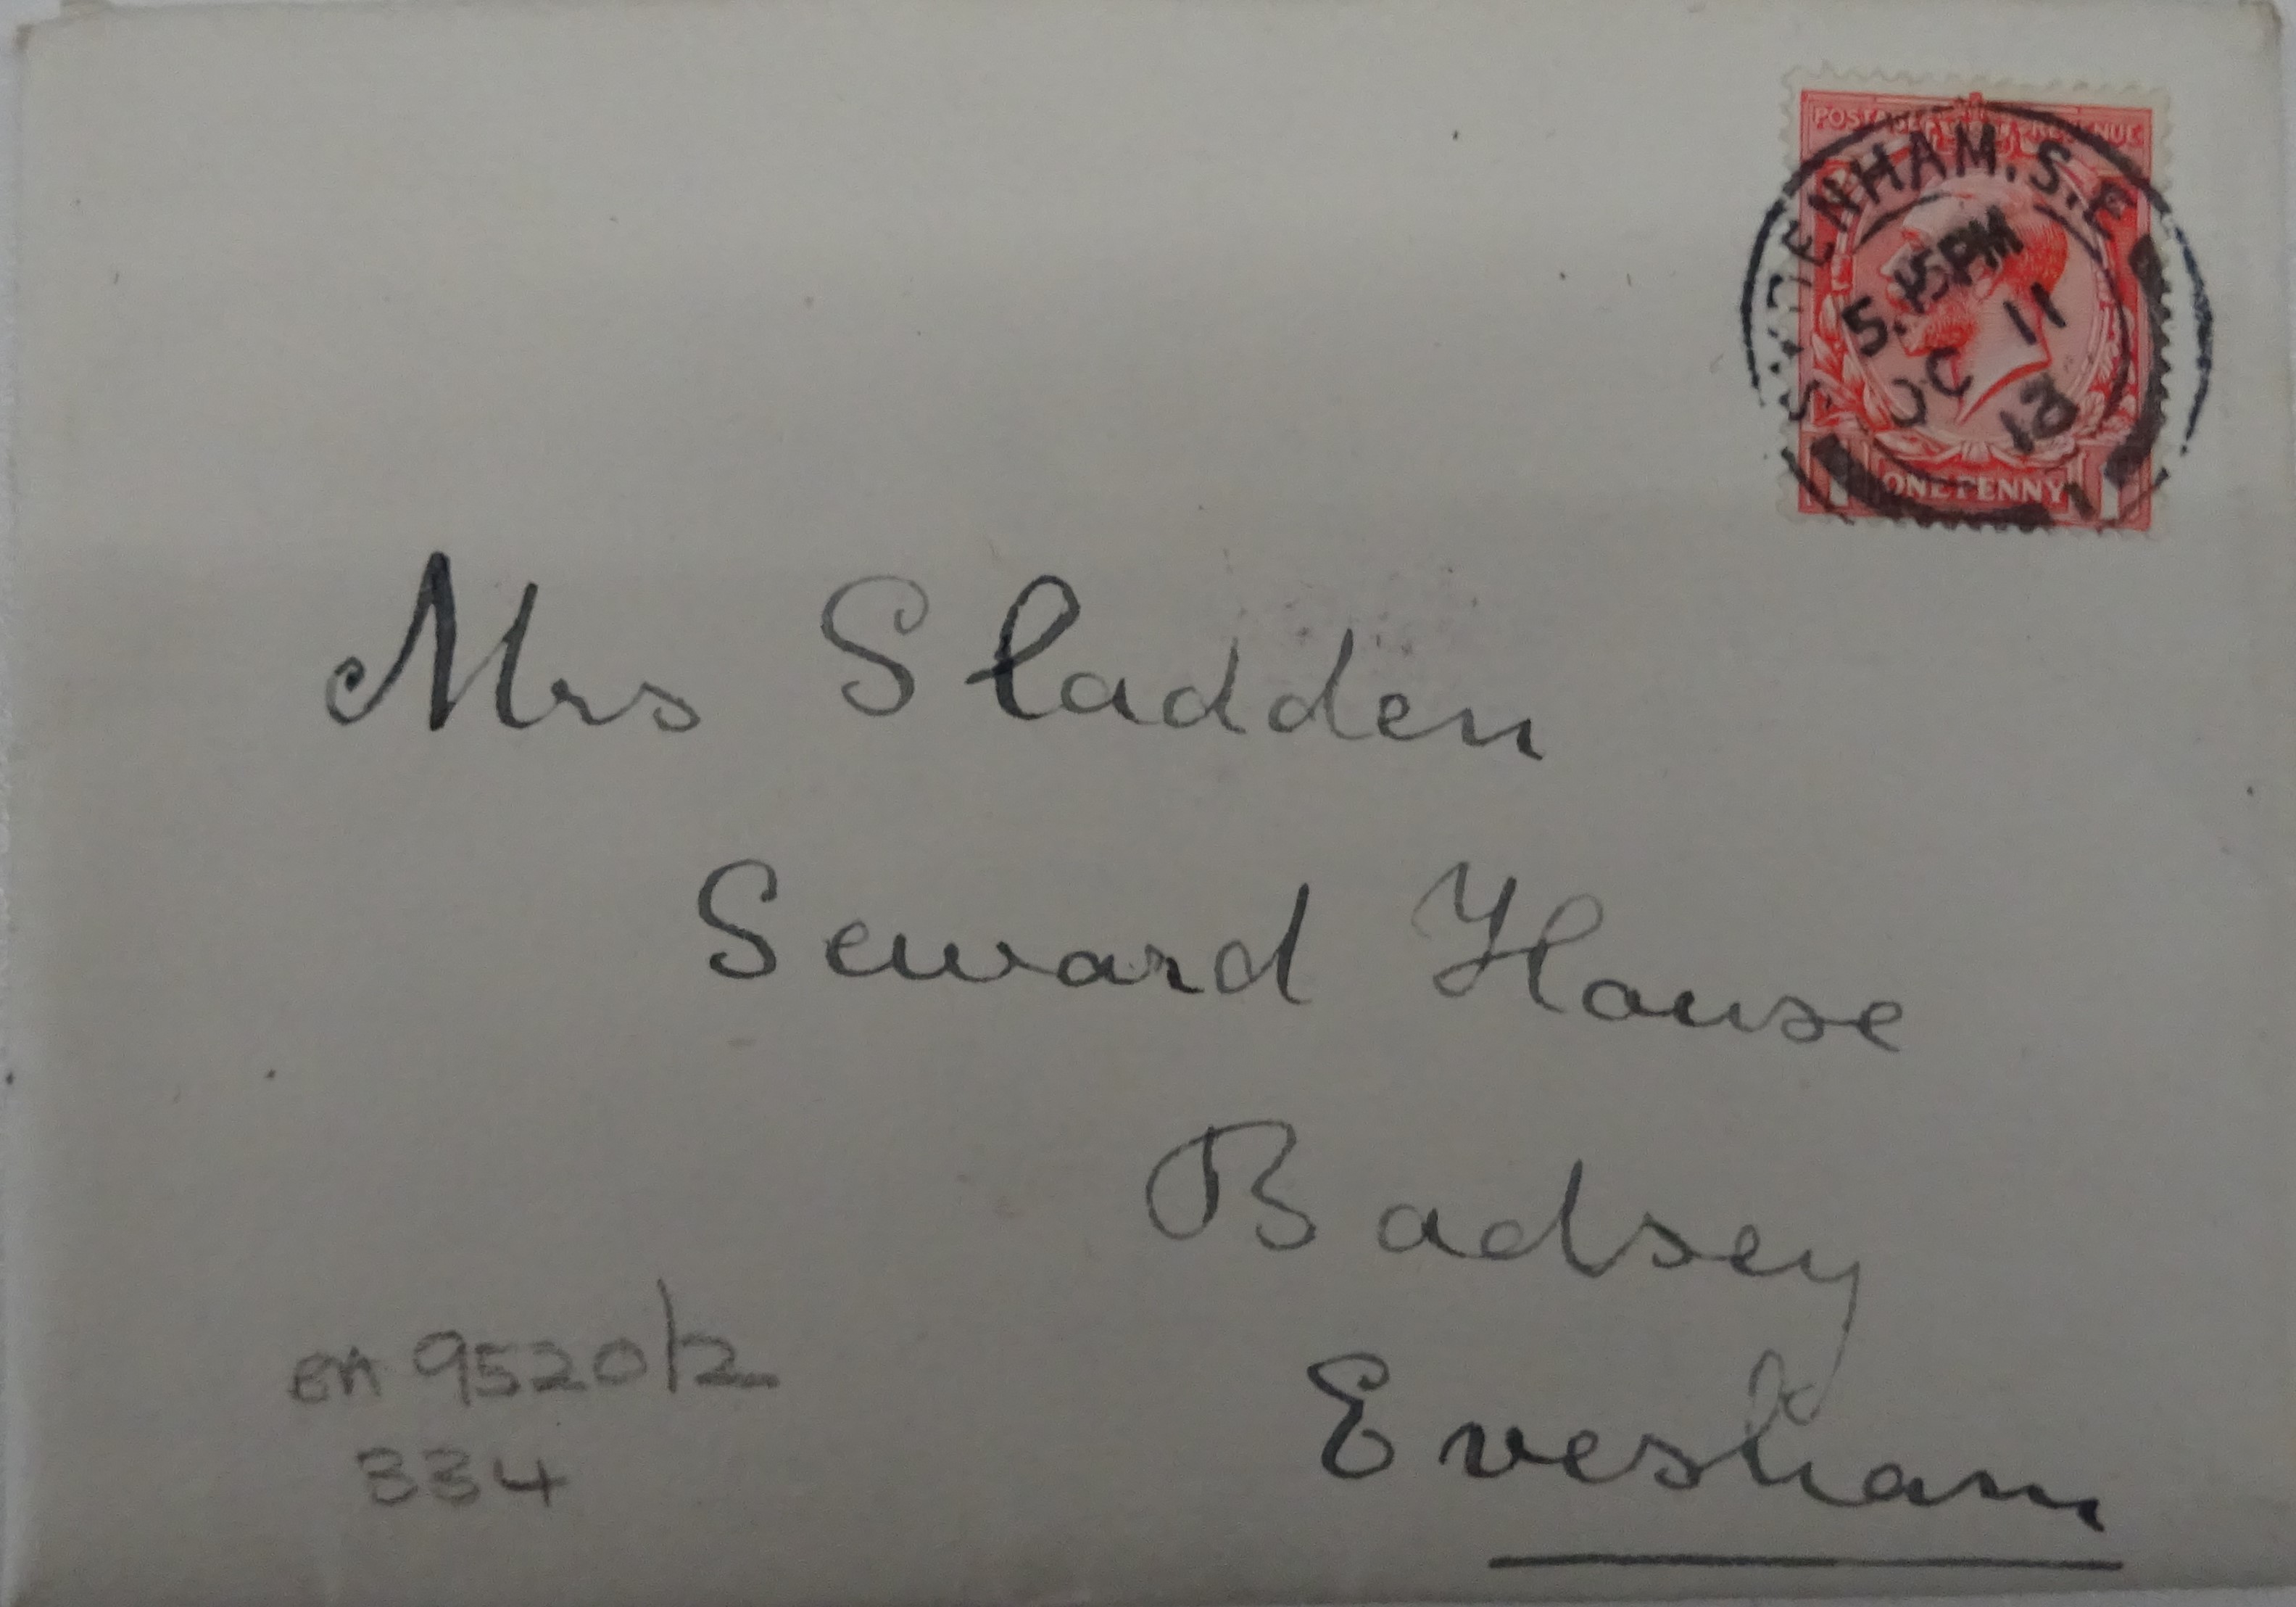 POSTAGE REVENUE
SYDENHAM. S.E
5.15PM
OC 11
13
1 ONE PENNY 1
Mrs Sladden
Seward House
Badsey
Evesham
en 9520/2
334